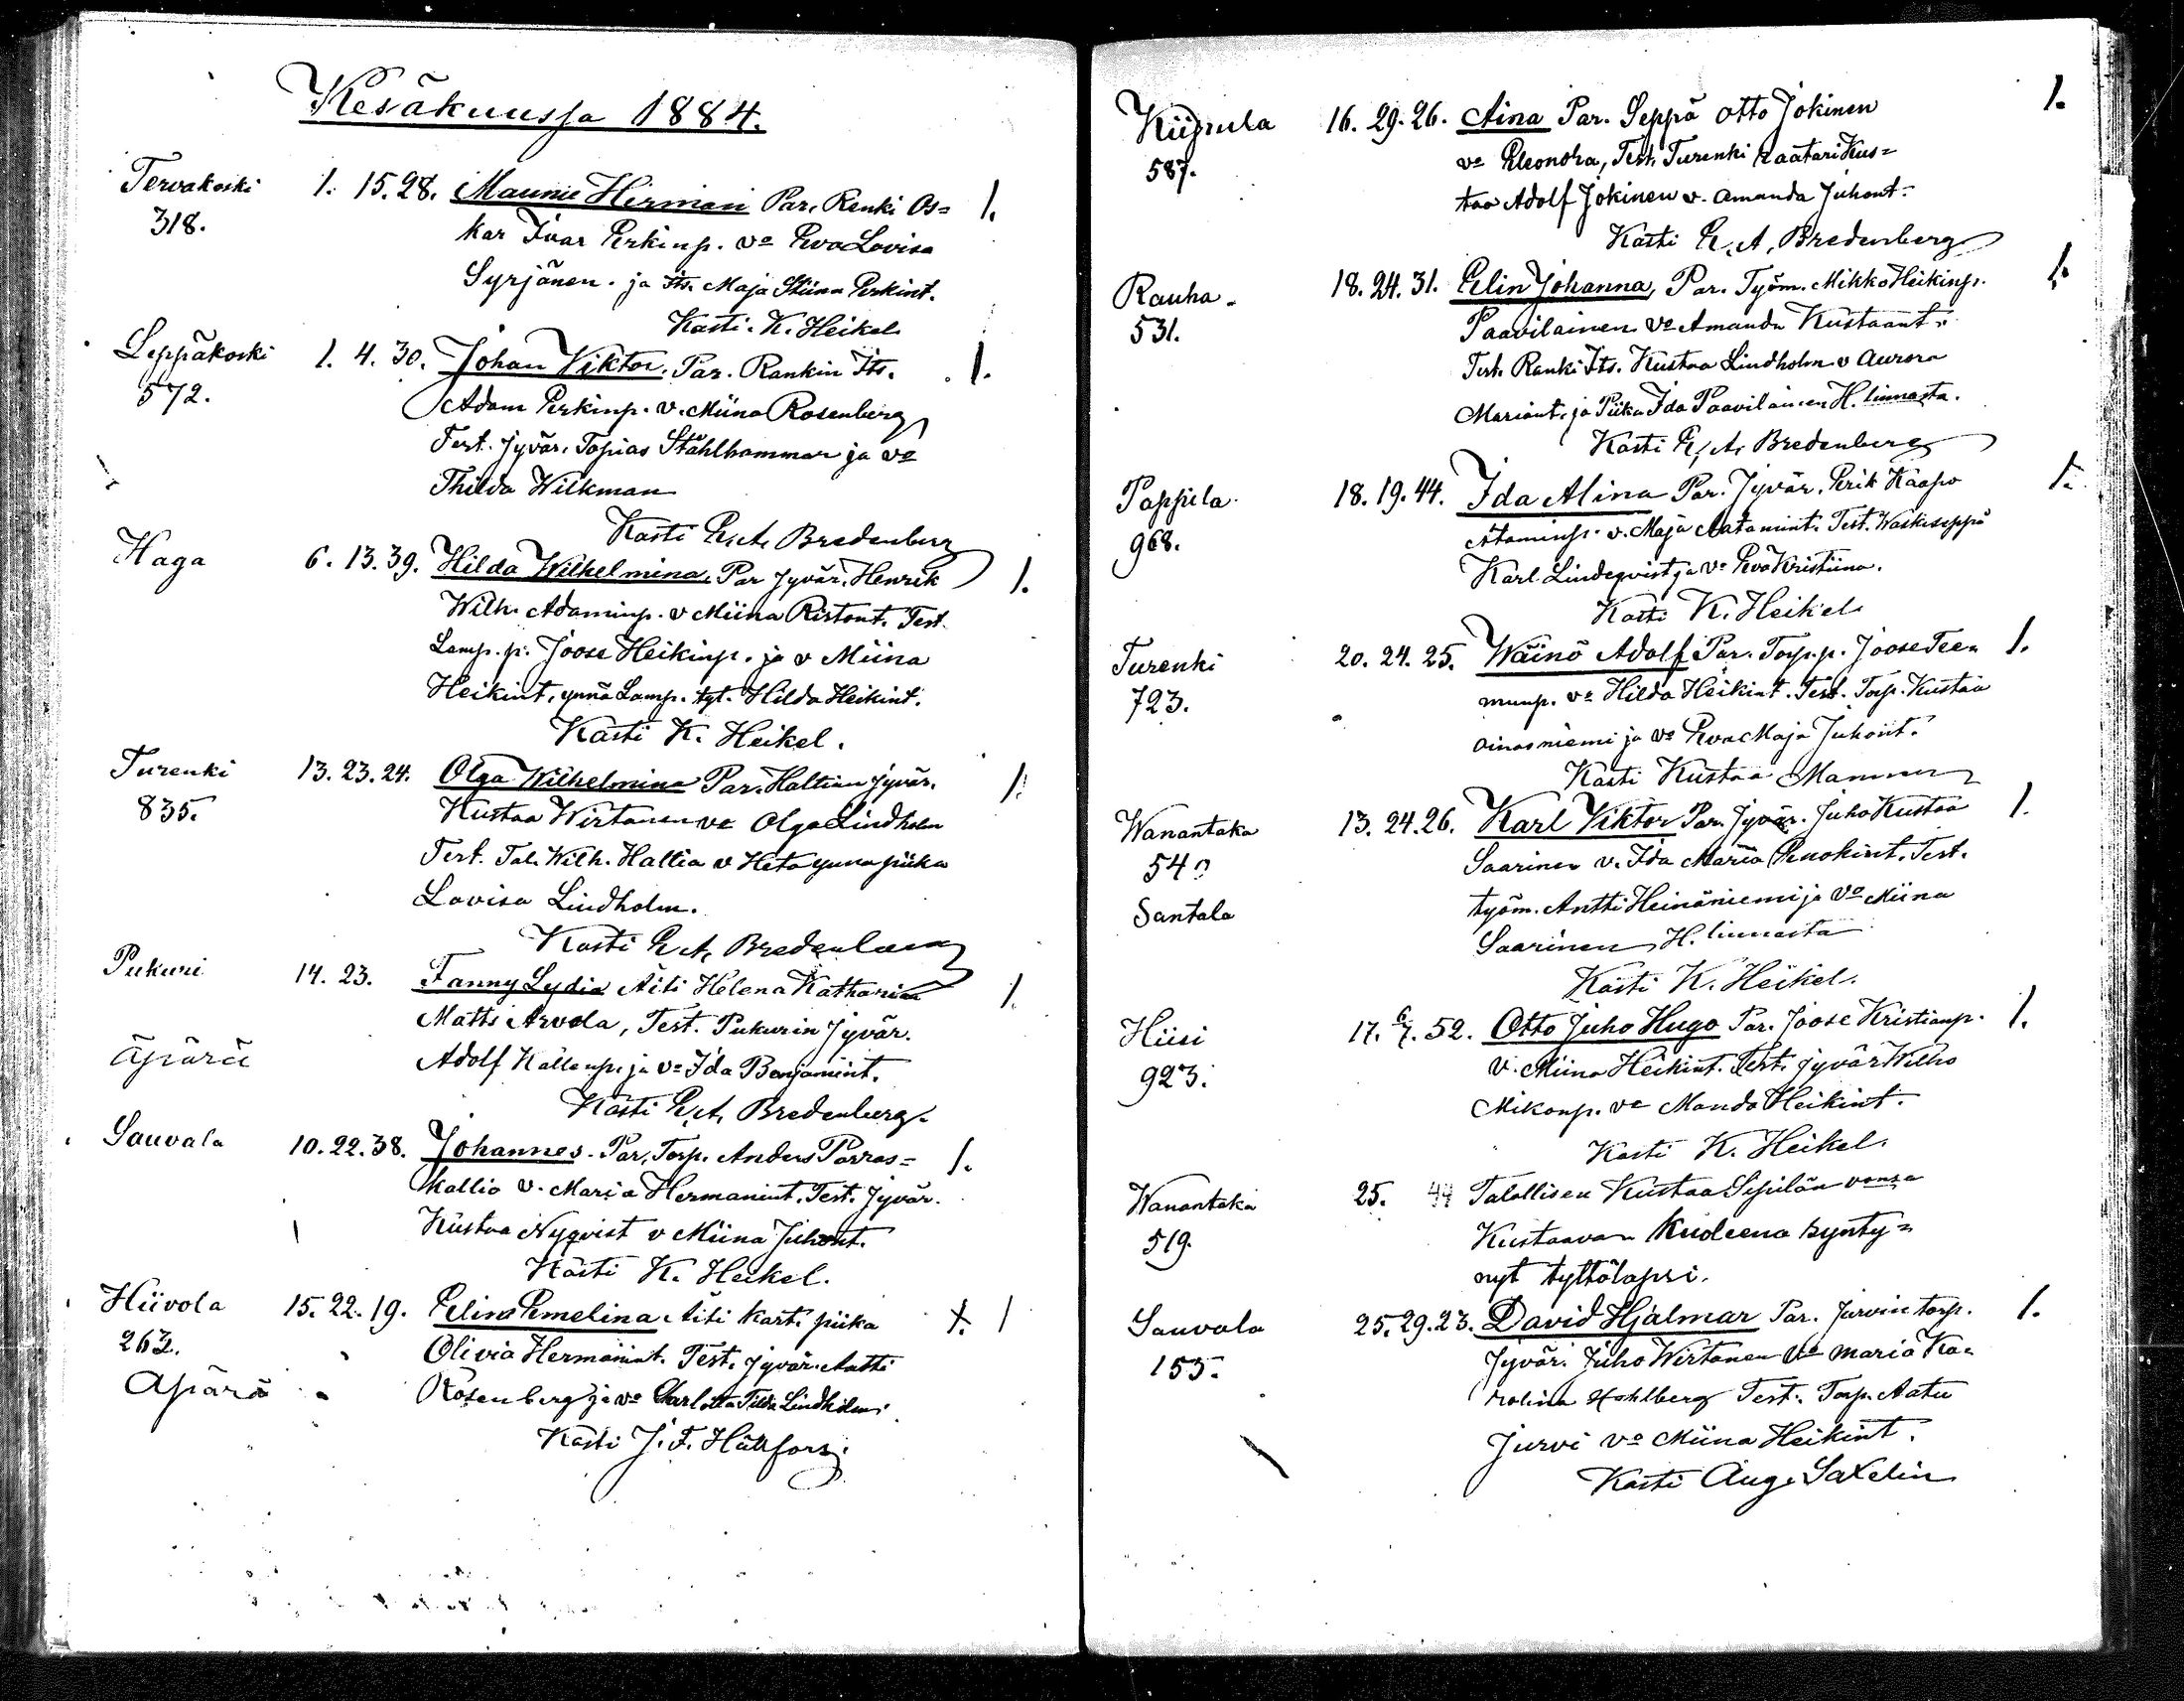 Kesäkuussa 1884.
Tervakoski 1. 15. 28. Maunu Hirman Par. Renki Os= 1.
318. kar Ivar Erkinp. vo Eva Lovisa
Syrjänen. ja Its. Maja Stiina Erkint.
Kasti. K. Heikel
Leppäkoski 1. 4. 30. Johan Viktor. Par. Rankin Its. 1.
572. Adam Erkinp. v. Miina Rosenberg
Test. Jyvär. Topias Stählhammar ja vo
Thilda Wilkman
Kasti E. A. Bredenberg
Haga 6. 13. 39. Hilda Wilhelmina. Par Jyvär. Henrik 1.
Wilh. Adaminp. v Miina Ristont. Test.
Lamp. p. Joose Heikinp. ja v Miina
Heikint. ynnä Lamp. tyt. Hilda Heikint.
Kasti K. Heikel.
Turenki 13. 23. 24. Olga Wilhelmina Par. Haltian jyvär. 1.
835. Kustaa Wirtanen vo Olga Lindholm
Test. Tal. Wilh. Haltia v Heta ynna piika
Lovisa Lindholm.
Kasti E. A. Bredenberg
Pukuri 14. 23. Fanny Lydia Äiti Helena Katharina 1.
Matts Arvola, Test. Pukurin Jyvär.
Äpärä Adolf Kallenp. ja vo Ida Benjamint.
Kasti E. A. Bredenberg
Sauvala 10. 22. 38. Johannes. Par. Torp. Anders Porras= 1.
kallio v. Maria Hermanint. Test. Jyvär.
Kustaa Nyqvist v Miina Juhont.
Kasti K. Heikel.
Hiivola 15. 22. 19. Elina Emelina. Äiti kart. piika 1. 1
263. Olivia Hermanint. Test. jyvär. Antti
Äpärä Rosenberg ja vo Charlotta Tilda Lindholm.
Kasti J. F. Hällfors.
Kiipula 16. 29. 26. Aina Par. Seppä Otto Jokinen 1.
587. vo Eleonora, Test. Turenki räätäri Kus=
taa Adolf Jokinen v. Amanda Juhont.
Kasti E. A. Bredenberg
Rauha. 18. 24. 31. Elin Johanna, Par. Työm. Mikko Heikinp. 1.
531. Paavilainen vo Amanda Kustaant.
Test. Ranki Its. Kustaa Lindholm v Aurora
Mariant. ja Piika Ida Paavilainen H. linnasta.
Kasti E. A. Bredenberg
Pappila 18. 19. 44. Ida Alina Par. Jyvär. Erik Kaapo 1.
968. Ataminp. v. Maja Aatamint. Test. Waskiseppä
Karl. Lindeqvist ja vo Eva Kristiina.
Kasti K. Heikel.
Turenki 20. 24. 25. Wäinö Adolf Par. Torp. p. Joose Tee= 1.
723. munp. vo Hilda Heikint. Test. Torp. Kustaa
Oinasniemi ja vo Eva Maja Juhont.
Kasti Kustaa Manner
Wanantaka 13. 24. 26. Karl Viktor Par. Jyvär. Juho Kustaa 1.
540 Saarinen v. Ida Maria Enokint. Test.
Santala työm. Antti Heinäniemi ja vo Miina
Saarinen H. linnasta
Kasti K. Heikel.
Hiisi 17. 6/7. 52. Otto Juho Hugo Par. Joose Kristianp. 1.
923. v. Miina Heikint. Test. jyvär Wilho
Mikonp. vo Manda Heikint.
Kasti K. Heikel.
Wanantaka 25. 44 Talollisen Kustaa Sipilän vaimo
519. Kustaavan kuoleena synty=
nyt tyttölapsi.
Sauvala 25. 29. 23. David Hjalmar Par. Jurvin torp. 1.
153. Jyvär. Juho Wirtanen vo Maria Ka=
rolina Hahlberg Test. Torp. Aatu
Jurvi vo Miina Heikint.
Kasti Aug. Saxelin